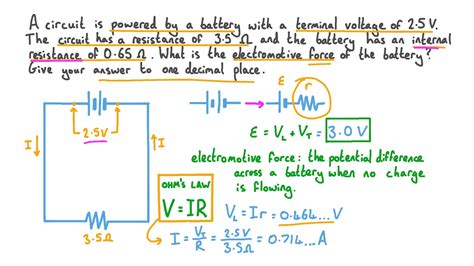 A circuit is powered by a battery with a terminal voltage of 2.5 V.
The circuit has a resistance of 3.5 Ω and the battery has an internal
resistance of 0.65 Ω. What is the electromotive force of the battery?
Give your answer to one decimal place.
ε r
2.5V
I I
3.5Ω
ε = V_L + V_T = 3.0 V
electromotive force: the potential difference
across a battery when no charge
is flowing.
OHM'S LAW
V = IR
V_L = Ir = 0.464... V
I = V_T/R = 2.5V/3.5Ω = 0.714... A